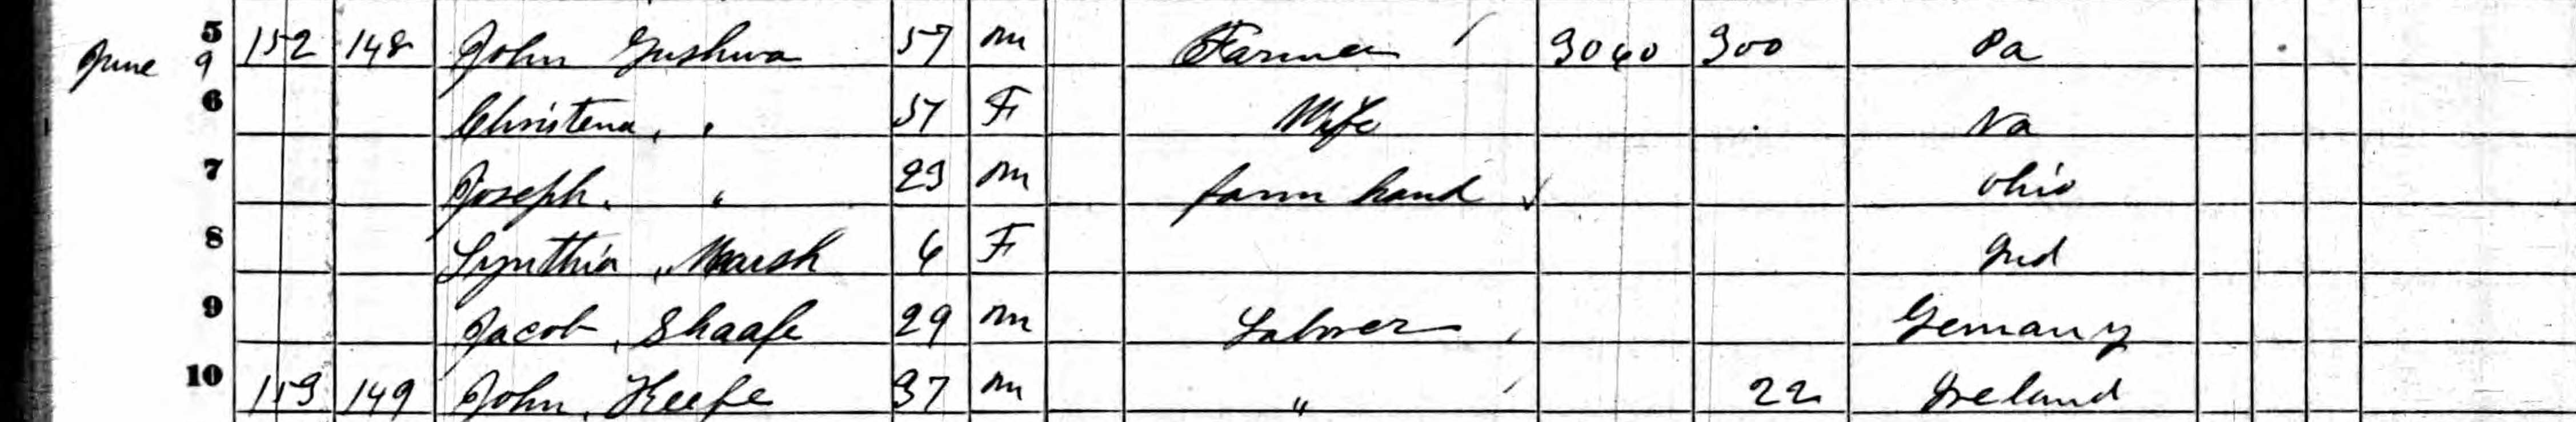 5 152 148 John Gushwa 57 m Farmer 3060 300 Pa
June 9
6 Christena, " 57 F Wife Va
7 Joseph. " 23 m farm hand Ohio
8 Synthia, Marsh 6 F Ind
9 Jacob, Shaafe 29 m Labrer Gemany
10 153 149 John, Keefe 37 m " 22 Ireland